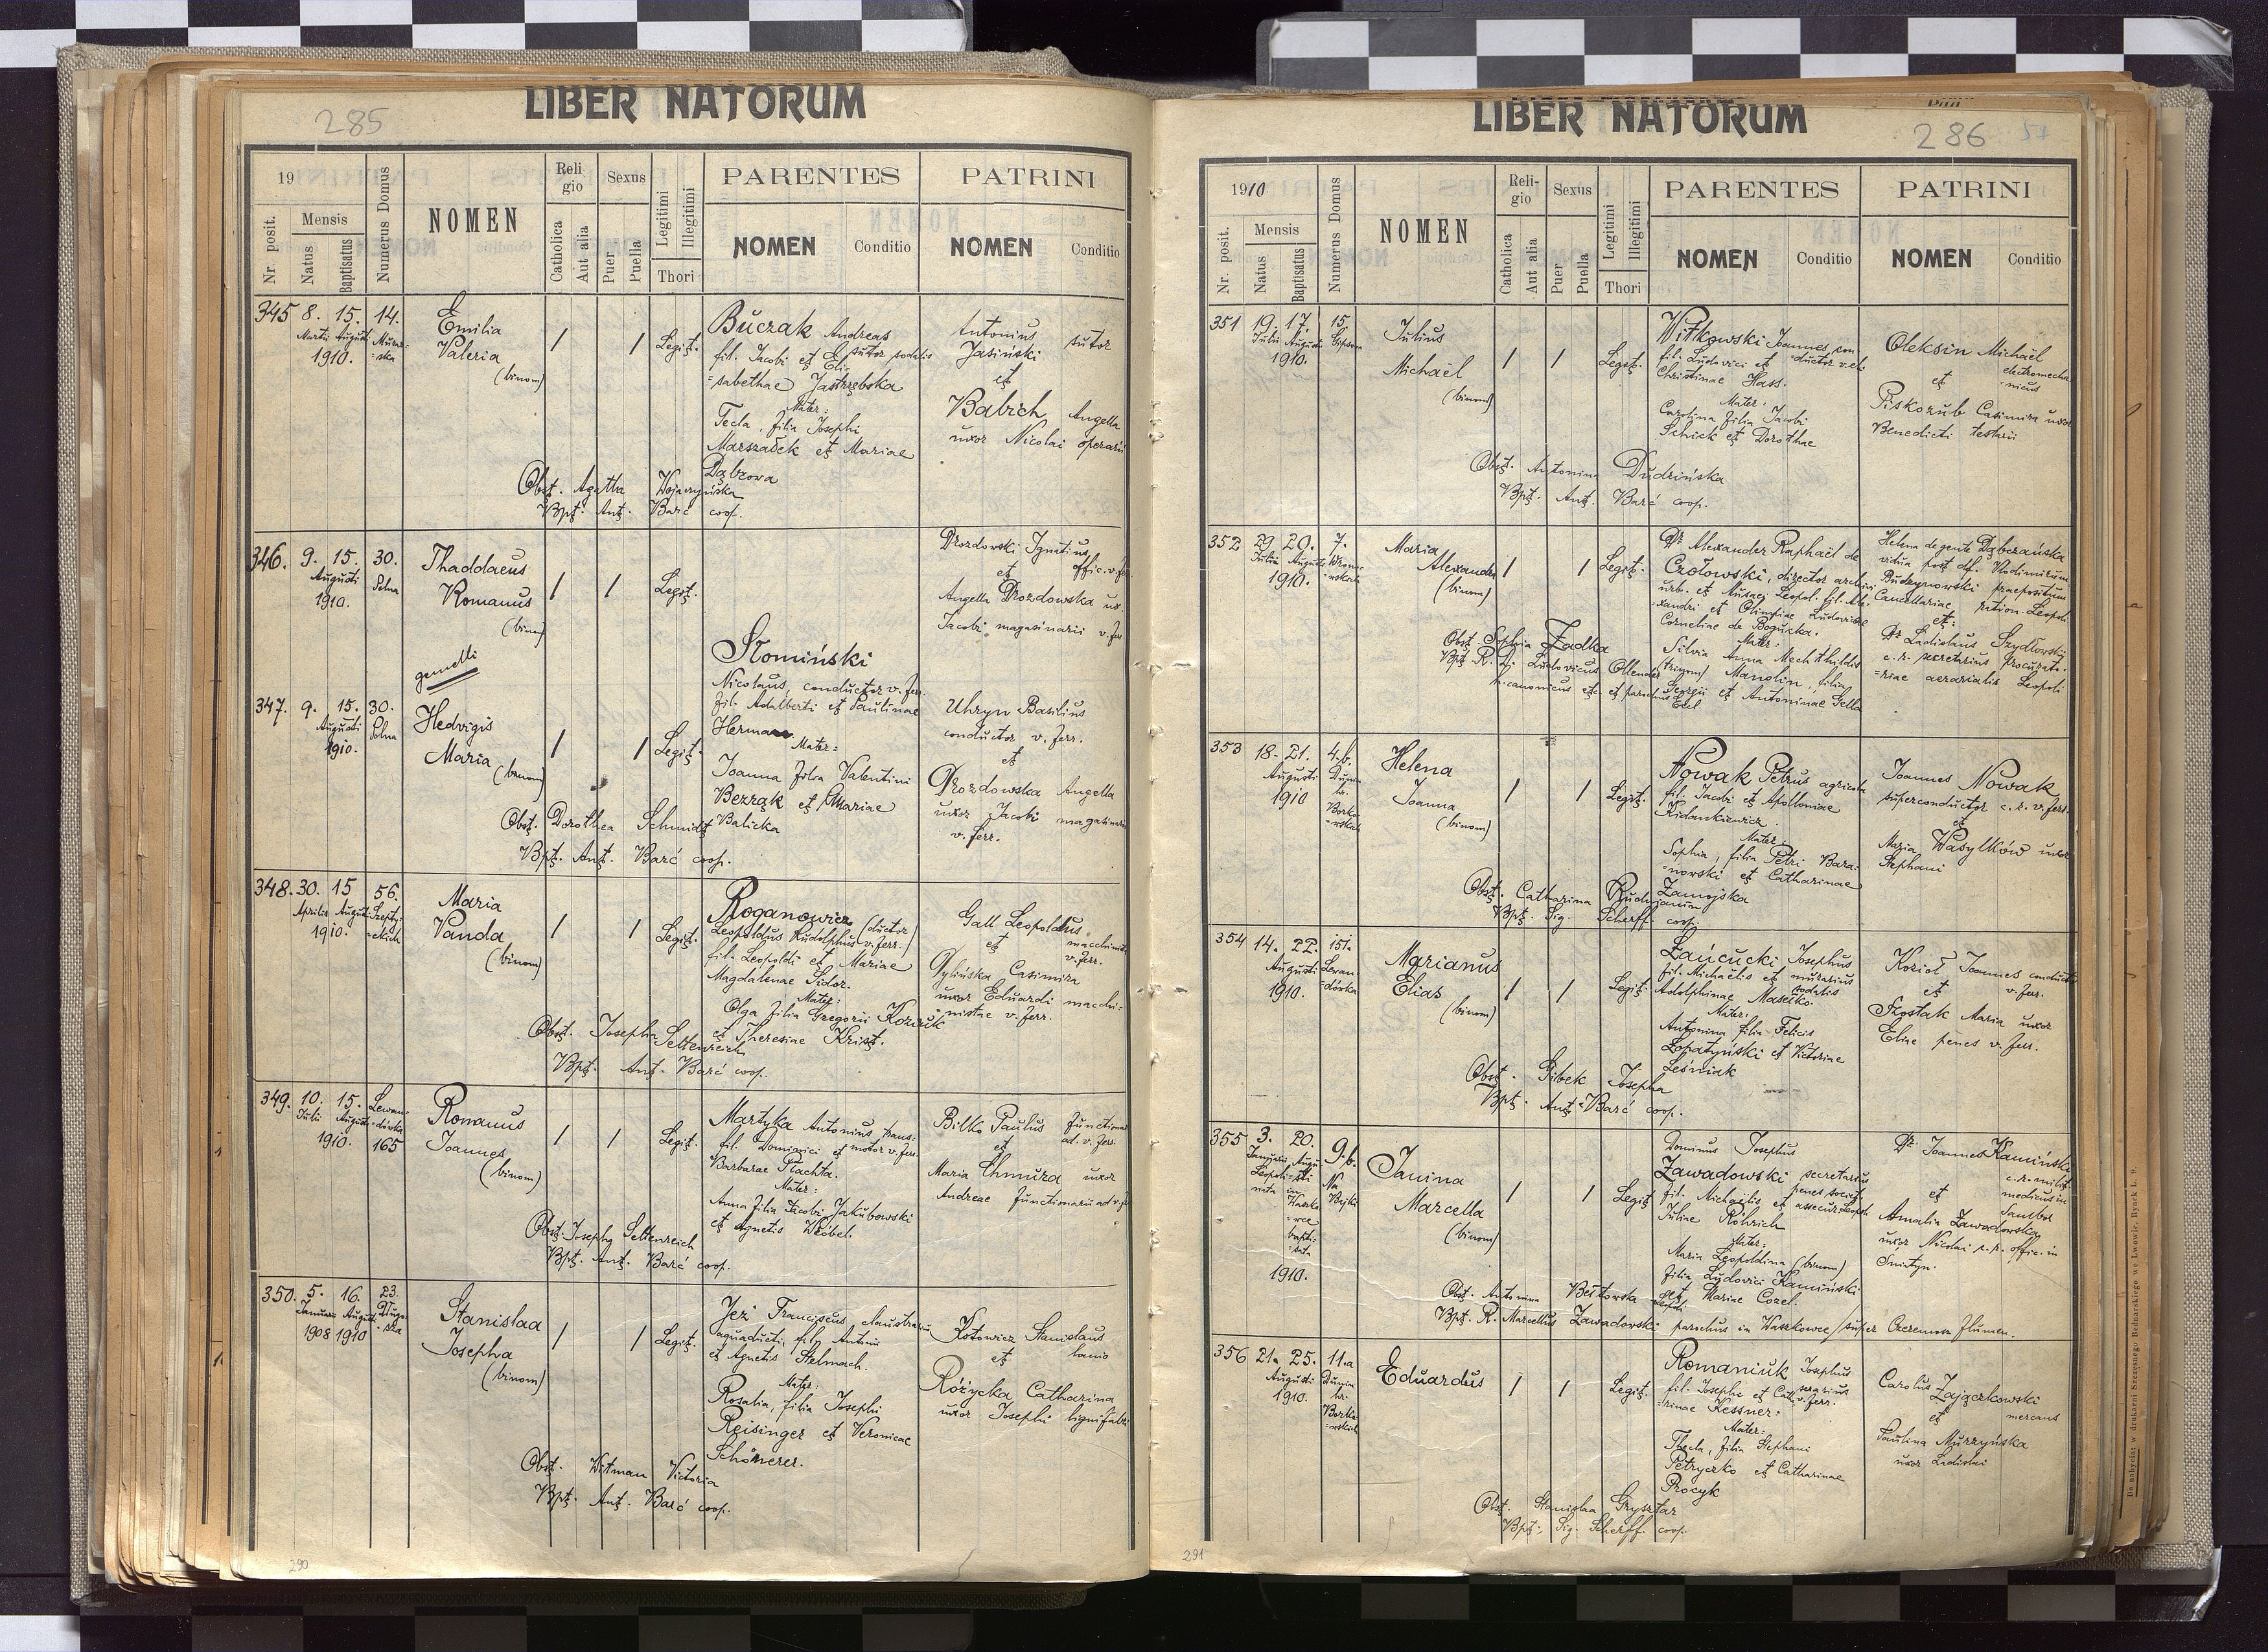 LIBER NATORUM
285
19
Nr. posit.
Mensis
Natus
Baptisatus
Numerus Domus
NOMEN
Religio
Catholica
Aut alia
Sexus
Puer
Puella
Legitimi
Illegitimi
Thori
PARENTES
NOMEN
Conditio
PATRINI
NOMEN
Conditio
345 8. 15. 14.
Martii Augusti
1910.
Emilia
Valeria
(binom)
/ / Legit.
Buczak Andreas
fil. Jacobi et Eli- sutor sodalis
=sabethae Jastrzębska
Mater:
Tecla, filia Josephi
Marszałek et Mariae
Dąbrowa
Antonius sutor
Jasiński
et
Babich Angella
uxor Nicolai operarii
Obst. Agatha
Bpt. Ant. Barć coop.
346. 9. 15. 30.
Augusti
1910.
Thaddaeus
Romanus
(bino)
/ / Legit.
Drozdowski Ignatius
et
Angella Drozdowska ux.
Jacobi magasinarii v. fer
gemelli
Słomiński
Nicolaus, conductor v. ferr.
fil. Adalberti et Paulinae
Herman
Mater:
Joanna filia Valentini
Bezrąk et Mariae
Balicka
347. 9. 15. 30.
Augusti
1910.
Hedvigis
Maria
(binom)
/ / Legit.
Uhryn Basilius
conductor v. ferr.
et
Drozdowska Angella
uxor Jacobi magasinarii
v. ferr.
Obst. Dorothea Schmidt
Bpt. Ant. Barć coop.
348. 30. 15 56.
Aprilis Augusti Szepty-
1910. -ckich
Maria
Vanda
(binom)
/ / Legit.
Roganowicz
Leopoldus Rudolphus (ductor v. ferr.)
fil. Leopoldi et Mariae
Magdalenae Sidor.
Mater:
Olga filia Gregorii Kozuik
et Theresiae Krist.
Gall Leopoldus
et
v. ferr.
Casimira
uxor Eduardi macchi-
nistae v. ferr.
Obst. Josepha Seltenreich
Bpt. Ant. Barć coop.
349. 10. 15. Lewan-
Julii Augusti -dówka
1910. 165
Romanus
Joannes
(binom)
/ / Legit.
Martyka Antonius trans-
fil. Dominici et motor v. ferr.
Barbarae Płachta.
Mater:
Anna filia Jacobi Jakubowski
et Agnetis Wróbel.
Bilko Paulus
et
Maria Chmura uxor
Andreae functionarii ad v. f
Obst. Josepha Seltenreich
Bpt. Ant. Barć coop.
350. 5. 16. 23.
Januarii Augusti
1908 1910
Stanislaa
Josepha
(binom)
/ / Legit.
Jeż Franciscus
aquaducti, fil. Antonii
et Agnetis Stelmach.
Mater:
Rosalia, filia Josephi
Reisinger et Veronicae
Schönerer.
Kotowicz Stanislaus
et lanio
Różycka Catharina
uxor Josephi lignifabri
Obst. Witman Victoria
Bpt. Ant. Barć coop.
290
LIBER NATORUM
286 57
1910
Nr. posit.
Mensis
Natus
Baptisatus
Numerus Domus
NOMEN
Religio
Catholica
Aut alia
Sexus
Puer
Puella
Legitimi
Illegitimi
Thori
PARENTES
NOMEN
Conditio
PATRINI
NOMEN
Conditio
351 19. 17. 15.
Julii Augusti
1910.
Julius
Michaël
(binom)
/ / Legit.
Witkowski Joannes, con
fil. Ludovici et -ductor v. el.
Christinae Hass.
Mater:
Carolina filia Jacobi
Schick et Dorothae
Oleksin Michaël
electromecha
et -nicus
Piskozub Casimira uxor
Benedicti testarii
Obst. Antonina Dudzińska
Bpt. Ant. Barć coop.
352 29 20. 7.
Julii Augusti
1910.
Maria
Alexandra
(binom)
/ / Legit.
Dr. Alexander Raphaël de
Czołowski, director archivi
urb. et Musaei Leopol. fil. Ale-
-xandri et Olimpiae Ludovicae
Corneliae de Bogucka.
Mater:
Silvia Anna Mechthildis
(trinom) Manolin, filia
Georgii et Antoninae Sella
Helena de gente Dąbczańska
vidua post df. Vlodimirum
Budzynowski praepositum
Cancellariae ration. Leopoli
et:
Dr. Ladislaus Szydłowski
c. r. secretarius procurato-
=riae aerarialis Leopoli
Obst. Sophia Zadka
Bpt. R. D. Ludovicus Ollender
h. canonicus et parochus
353 18. 21. 4.b.
Augusti Dunin
1910 Borko-
-wskich
Helena
Joanna
(binom)
/ / Legit.
Nowak Petrus agricola
fil. Jacobi et Apolloniae
Kidankiewicz.
Mater:
Sophia, filia Petri Bara-
-nowski et Catharinae
Zamojska
Joannes Nowak
superconductor c. r. v. ferr.
et
Maria Wasylków uxor
Stephani
Obst. Catharina
Bpt. Sig. Scherff. coop.
354 14. 22. 151.
Augusti Lewan-
1910. =dówka
Marianus
Elias
(binom)
/ / Legit.
Łańcucki Josephus
fil. Michaëlis et murarius
Adolphinae Masełko sodalis
Mater:
Antonina filia Felicis
Łopatyński et Victoriae
Leśniak
Kozioł Joannes conductor
et v. ferr.
Szostak Maria uxor
Eliae penes v. ferr.
Obst. Gibek Josepha
Bpt. Ant. Barć coop.
355 3. 20. 9.b.
Januarii Augu
Leopoli -sti Na
nata in Bajki
Waszko
-wce
bapti-
-sata
1910.
Janina
Marcella
(binom)
/ / Legit.
Dominus Josephus
Zawadowski secretarius
fil. Michaëlis et penes societ.
Juliae Röhrich assecur. Leopoli
Mater:
Maria Leopoldina (binom)
filia Ludovici Kamiński
et Mariae Cozel.
Dr. Joannes Kamiński
c. r. milit.
et medicus in
Sambor
Amalia Zawadowska
uxor Nicolai c. r. offic. in
Śniatyn.
Obst. Antonina Bełtowska Leopoli
Bpt. R. Marcellus Zawadowski parochus in Waszkowce/super Czeremosz flumen.
356 21. 25. 11.a
Augusti Dunin
1910. Borko-
-wskich
Eduardus
/ / Legit.
Romaniuk Josephus
fil. Josephi et Catha- serarius
-rinae Kessner. v. ferr.
Mater:
Thecla, filia Stephani
Petryczko et Catharinae
Procyk
Carolus Zajączkowski
et mercans
Paulina Murzyńska
uxor Ladislai
Obst. Stanislaa Grysztar
Bpt. Sig. Scherff. coop.
291
Do nabycia: w drukarni Szczęsnego Bednarskiego we Lwowie, Rynek L. 9.